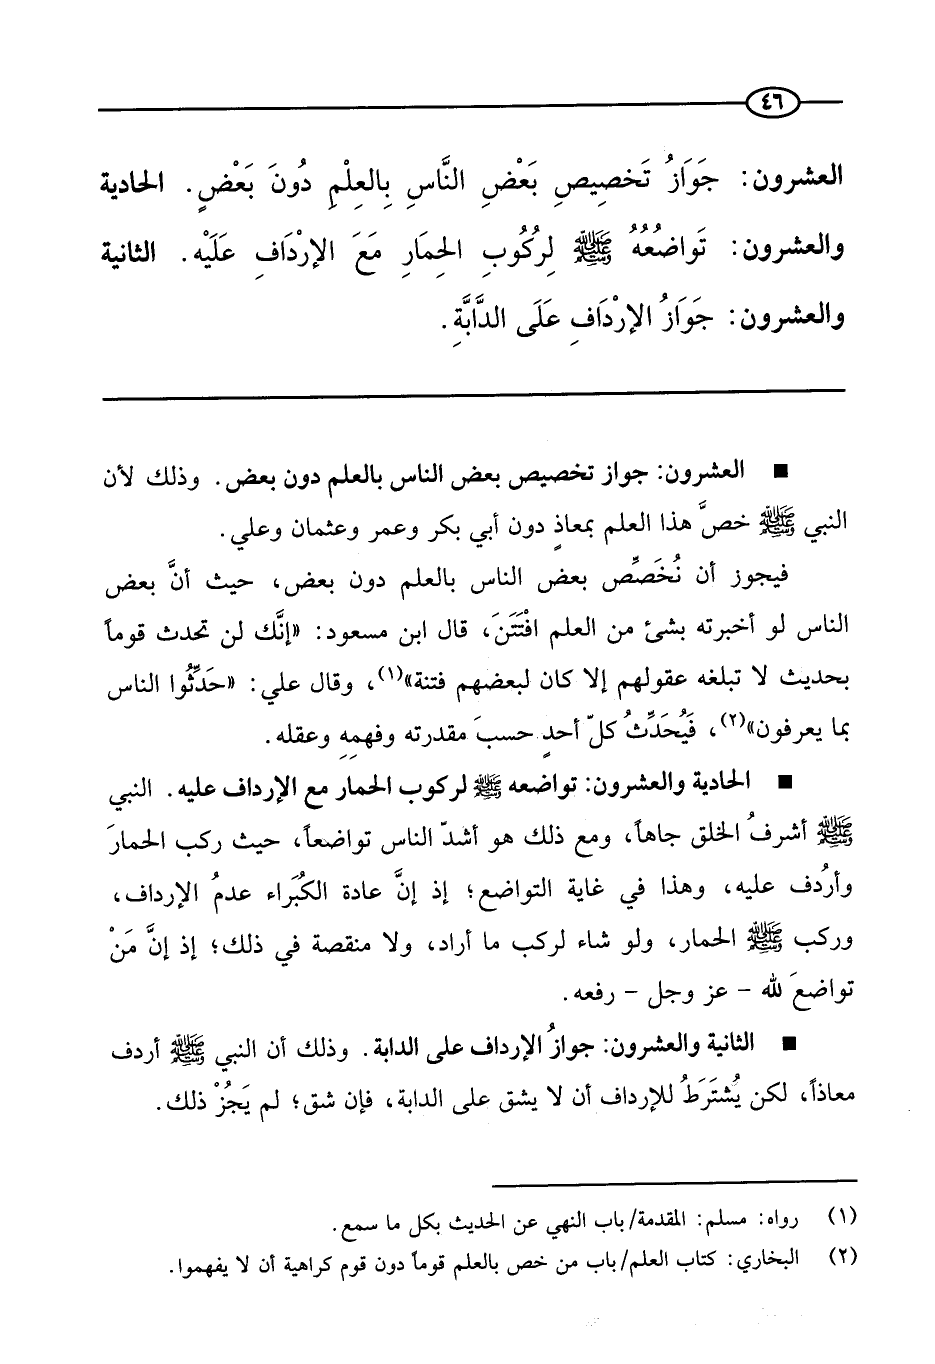 ٤٦
العشرون: جَوَازُ تَخصِيصِ بَعْضِ النَّاسِ بِالعِلْمِ دُونَ بَعْضٍ. الحادية
والعشرون: تَواضُعُهُ ﷺ لِرُكُوبِ الحِمَارِ مَعَ الإِرْدَافِ عَلَيْه. الثانية
والعشرون: جَوَازُ الإِرْدَافِ عَلَى الدَّابَّةِ.
■ العشرون: جواز تخصيص بعض الناس بالعلم دون بعض. وذلك لأن
النبي ﷺ خصَّ هذا العلم بمعاذٍ دون أبي بكر وعمر وعثمان وعلي.
فيجوز أن نُخَصِّص بعض الناس بالعلم دون بعض، حيث أنَّ بعض
الناس لو أخبرته بشئ من العلم افْتَتَنَ، قال ابن مسعود: «إنَّك لن تحدث قوماً
بحديث لا تبلغه عقولهم إلا كان لبعضهم فتنة»(١)، وقال علي: «حَدِّثُوا الناس
بما يعرفون»(٢)، فَيُحَدِّثُ كلّ أحدٍ حسبَ مقدرته وفهمِهِ وعقله.
■ الحادية والعشرون: تواضعه ﷺ لركوب الحمار مع الإرداف عليه. النبي
ﷺ أشرفُ الخلق جاهاً، ومع ذلك هو أشدّ الناس تواضعاً، حيث ركب الحمارَ
وأردُف عليه، وهذا في غاية التواضع؛ إذ إنَّ عادة الكُبَراء عدمُ الإرداف،
وركب ﷺ الحمار، ولو شاء لركب ما أراد، ولا منقصة في ذلك؛ إذ إنَّ مَنْ
تواضعَ لله - عز وجل - رفعه.
■ الثانية والعشرون: جوازُ الإرداف على الدابة. وذلك أن النبي ﷺ أردف
معاذاً، لكن يُشتَرَطُ للإرداف أن لا يشق على الدابة، فإن شق؛ لم يَجُزْ ذلك.
(١) رواه: مسلم: المقدمة/باب النهي عن الحديث بكل ما سمع.
(٢) البخاري: كتاب العلم/باب من خص بالعلم قوماً دون قوم كراهية أن لا يفهموا.